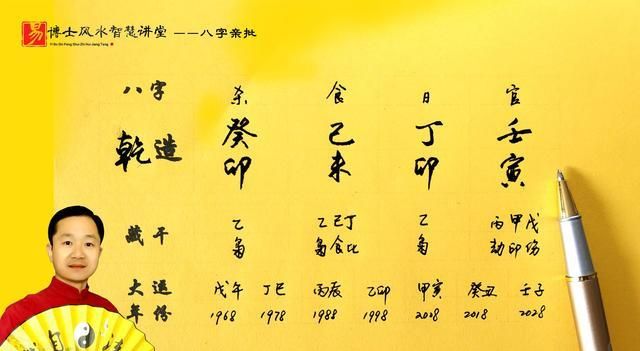 易 博士风水智慧讲堂 ——八字亲批
Yi Bo Shi Feng Shui Zhi Hui Jiang Tang
八字 杀 食 日 官
乾造 癸 己 丁 壬
卯 未 卯 寅
藏干 乙 乙己丁 乙 丙甲戊
枭 枭食比 枭 劫印伤
大运 戊午 丁巳 丙辰 乙卯 甲寅 癸丑 壬子
年份 1968 1978 1988 1998 2028 2018 2028